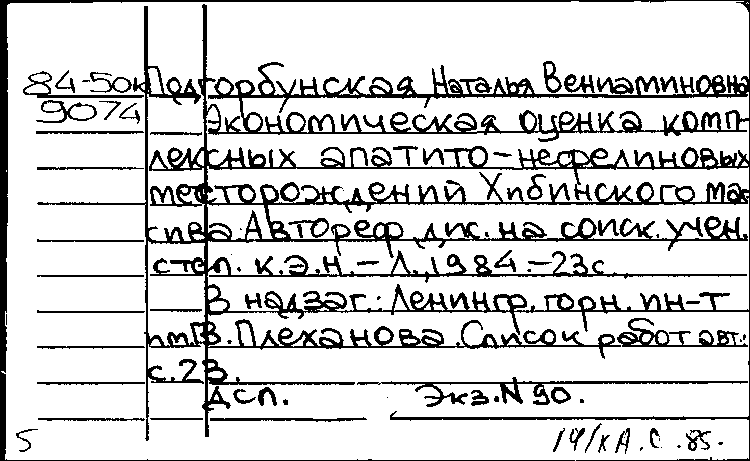 84-5ок Подгорбунская, Наталья Вениаминовна
9074 Экономическая оценка комп-
лексных апатито-нефелиновых
месторождений Хибинского мас
сива. Автореф. дис. на соиск. учен.
степ. к.э.н. - Л., 1984. - 23с.
В надзаг.: Ленингр. горн. ин-т
им. Г.В. Плеханова. Список работ авт.:
с. 23.
ДСП. Экз. N 90.
5 14/к А.С. 85.